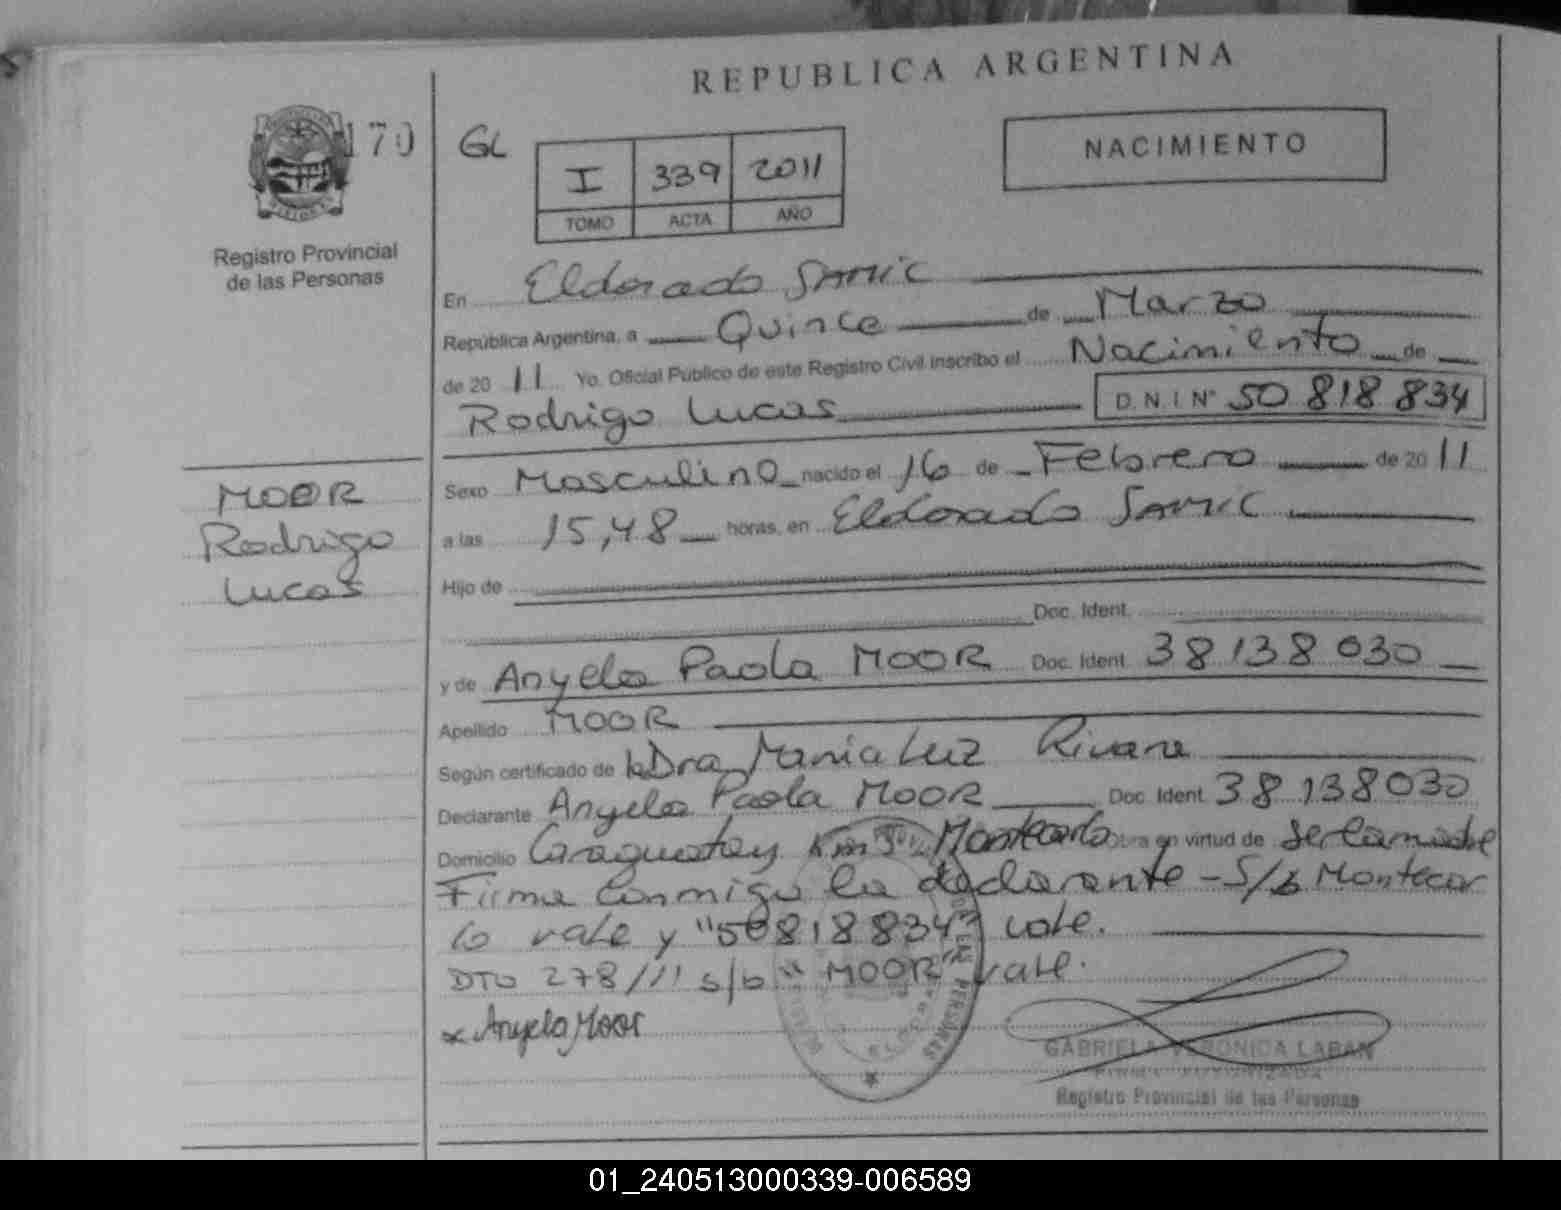 REPUBLICA ARGENTINA
170
GL
I 339 2011
TOMO ACTA AÑO
NACIMIENTO
Registro Provincial
de las Personas
En Eldorado SAMIC
República Argentina, a Quince de Marzo
de 20 11 Yo. Oficial Público de este Registro Civil inscribo el Nacimiento de
Rodrigo Lucas D.N.I Nº 50 818 834
MOOR
Rodrigo
Lucas
Sexo Masculino nacido el 16 de Febrero de 20 11
a las 15,48 horas, en Eldorado SAMIC
Hijo de
Doc. Ident.
y de Anyela Paola MOOR Doc. Ident. 38 138 030
Apellido MOOR
Según certificado de la Dra Maria Luz Rivara
Declarante Anyela Paola MOOR Doc. Ident 38 138 030
Domicilio Caraguatay Km Montecarlo obra en virtud de ser la madre
Firma conmigo la declarante - S/b Montecar
lo vale y "50818834" vale.
DTO 278/11 s/b "MOOR" vale.
x Anyela Moor
GABRIELA VERONICA LABAN
FIRMA AUTORIZADA
Registro Provincial de las Personas
01_240513000339-006589